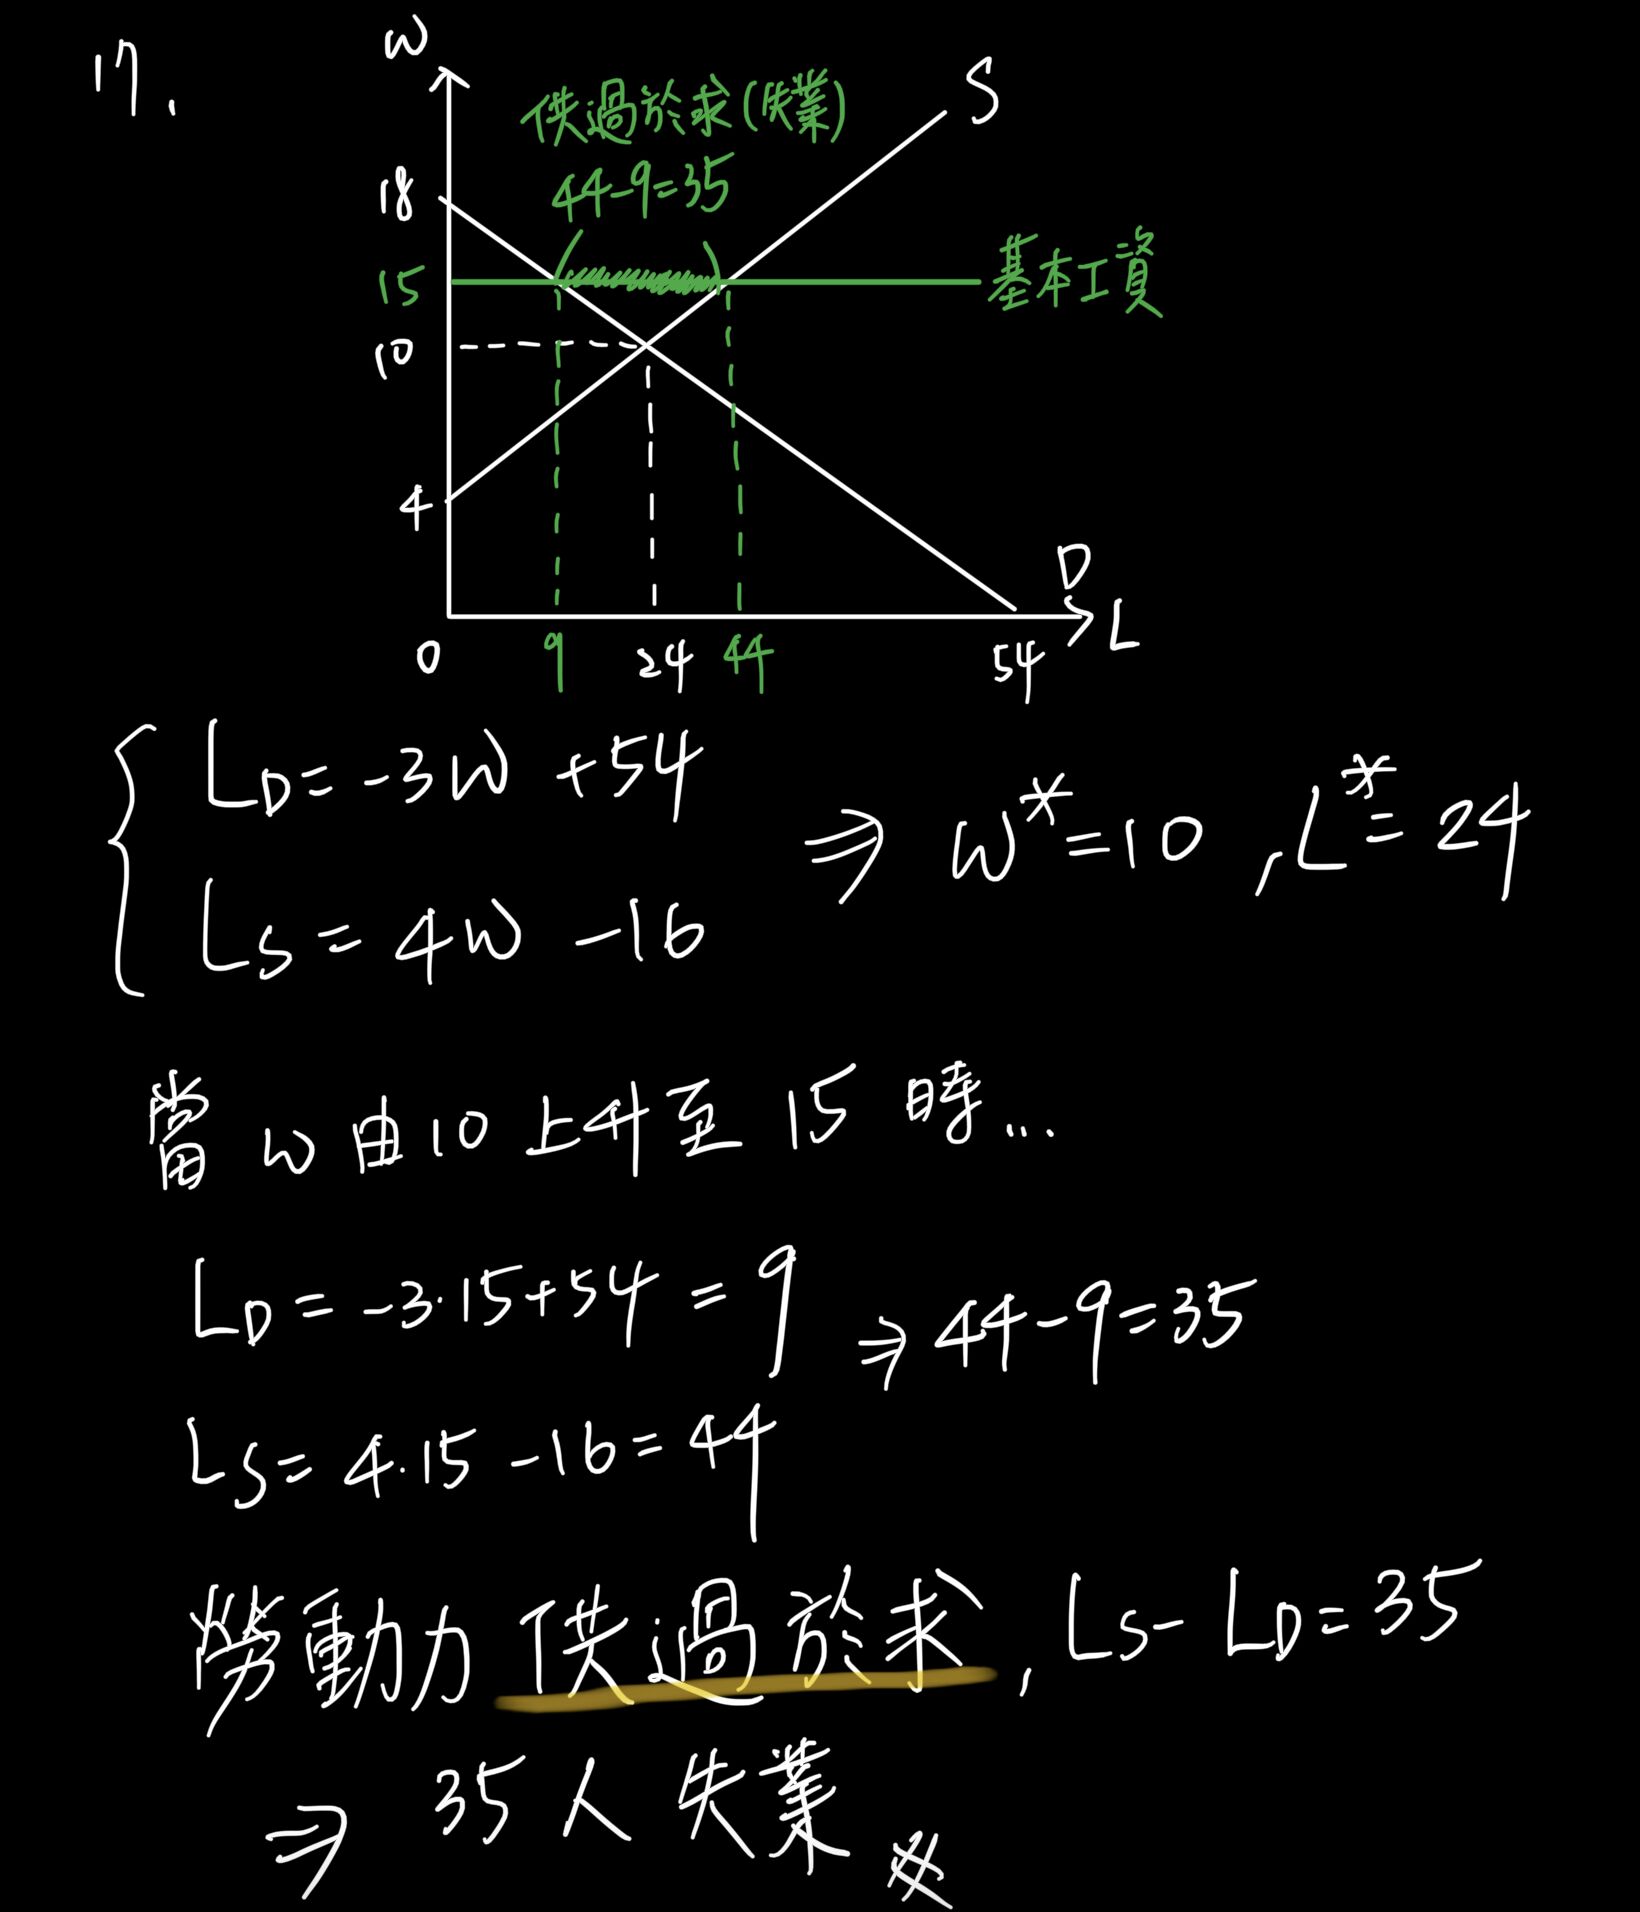 17.
W
S
供過於求(失業)
44-9=35
18
15
基本工資
10
4
D
L
0
9
24
44
54
L_D = -3W + 54
⇒ W* = 10 , L* = 24
L_S = 4W - 16
當 W 由 10 上升至 15 時...
L_D = -3·15+54 = 9
⇒ 44-9=35
L_S = 4·15 - 16 = 44
勞動力 供過於求, L_S - L_D = 35
⇒ 35人 失業